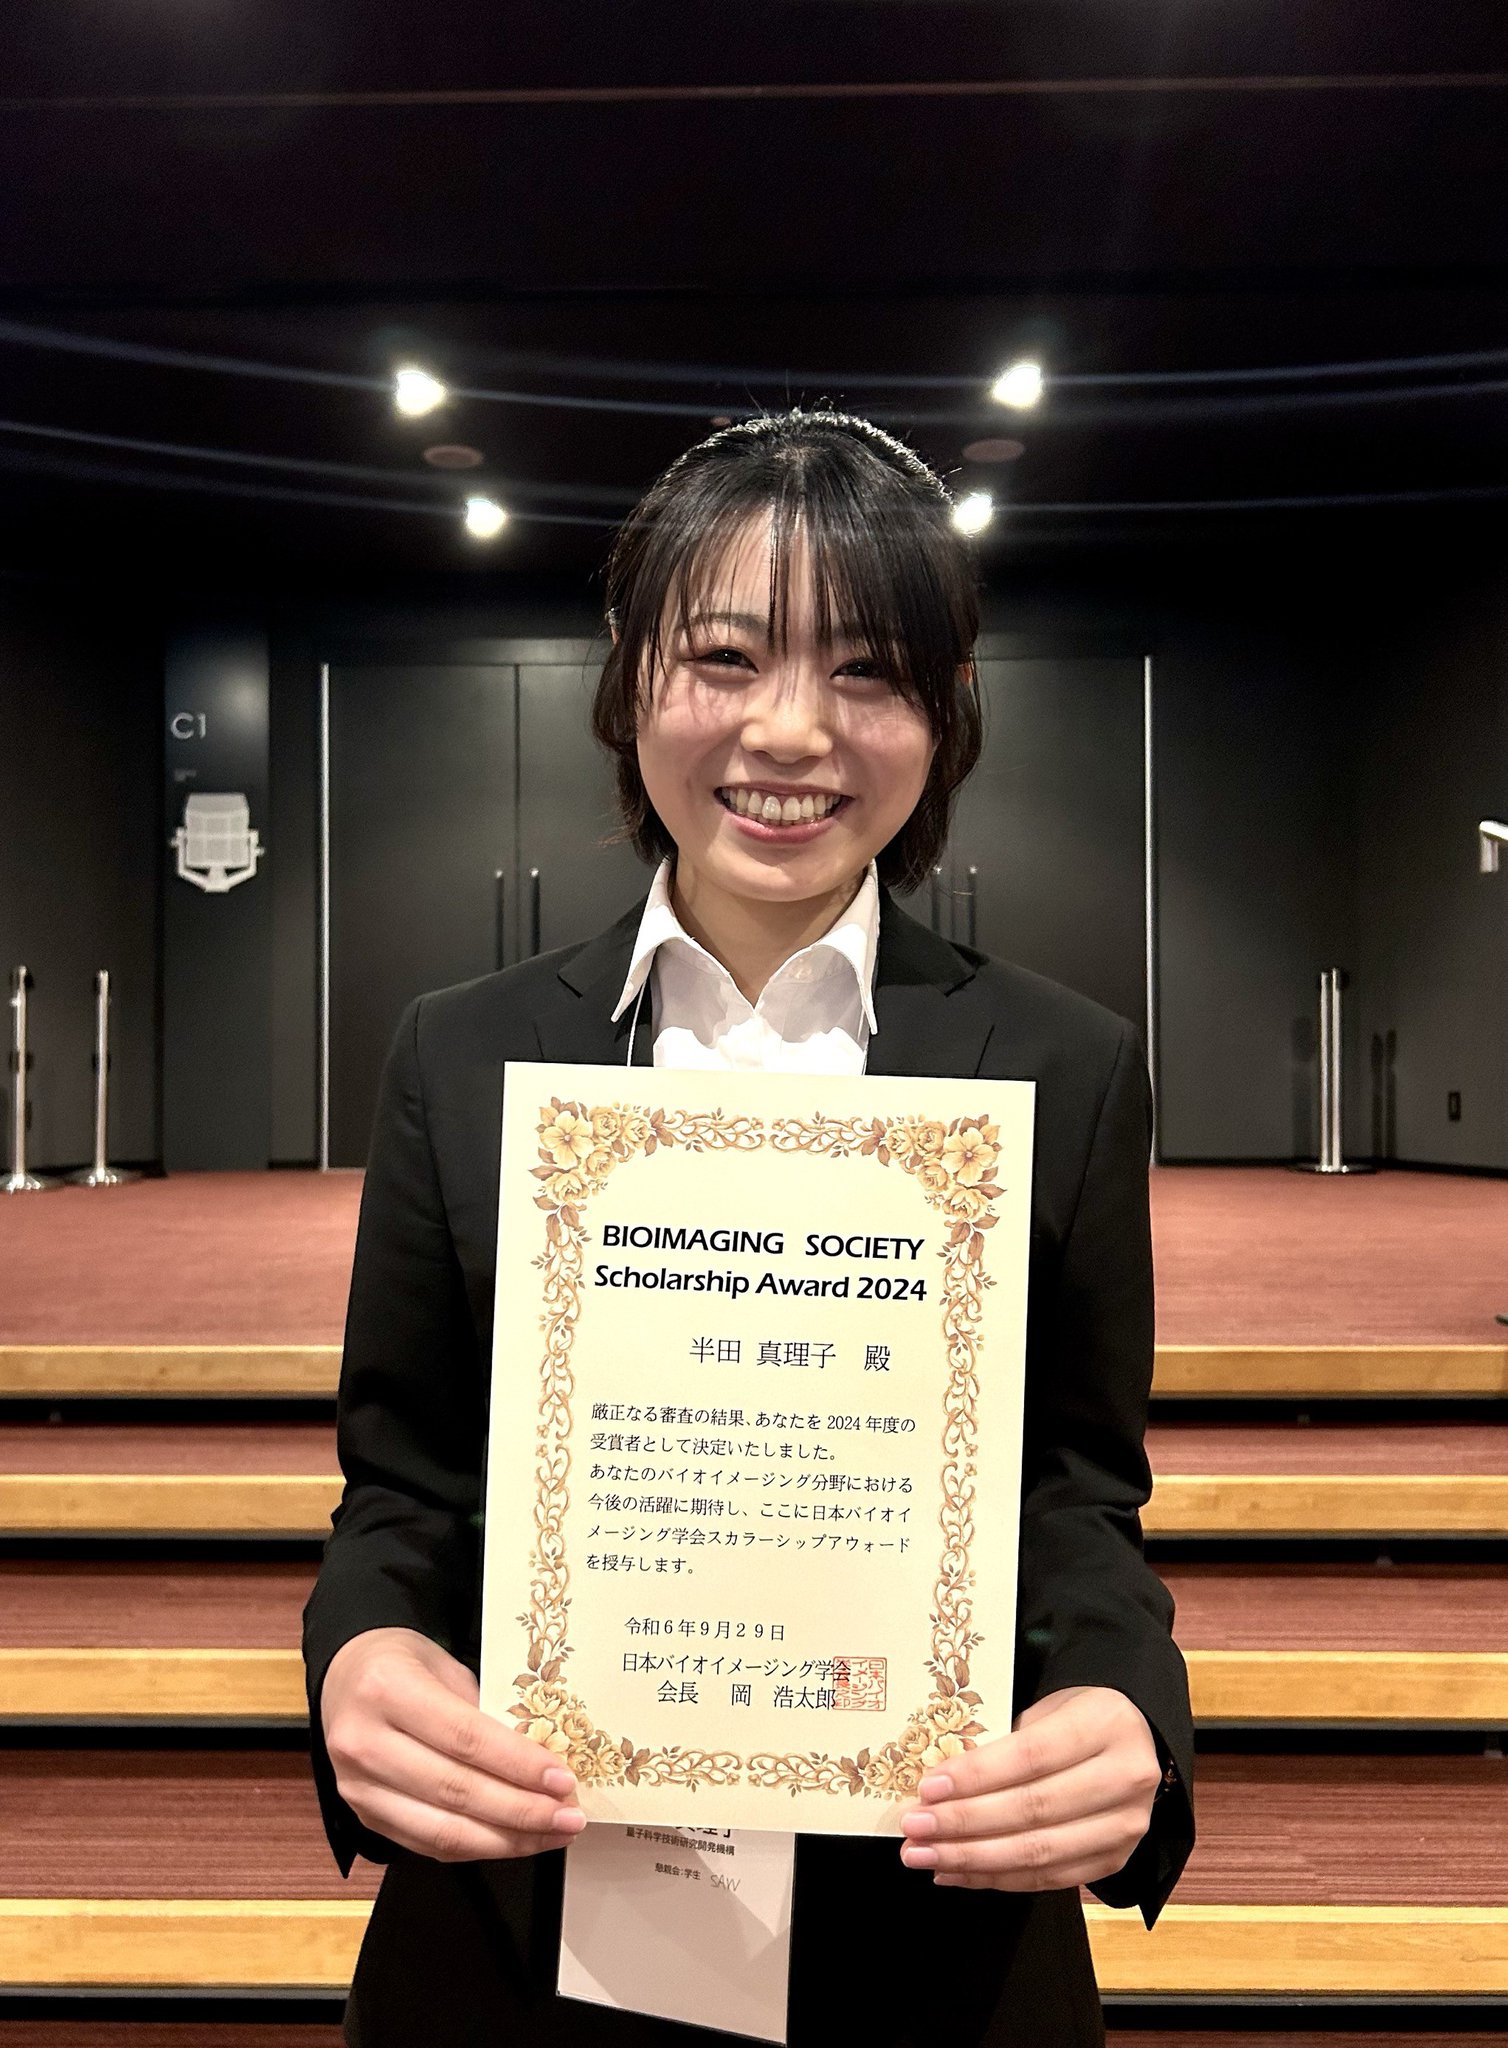 C1
BIOIMAGING SOCIETY
Scholarship Award 2024
半田 真理子 殿
厳正なる審査の結果、あなたを 2024 年度の
受賞者として決定いたしました。
あなたのバイオイメージング分野における
今後の活躍に期待し、ここに日本バイオイ
メージング学会スカラーシップアウォード
を授与します。
令和６年９月２９日
日本バイオイメージング学会
会長 岡 浩太郎
量子科学技術研究開発機構
懇親会:学生 SAW